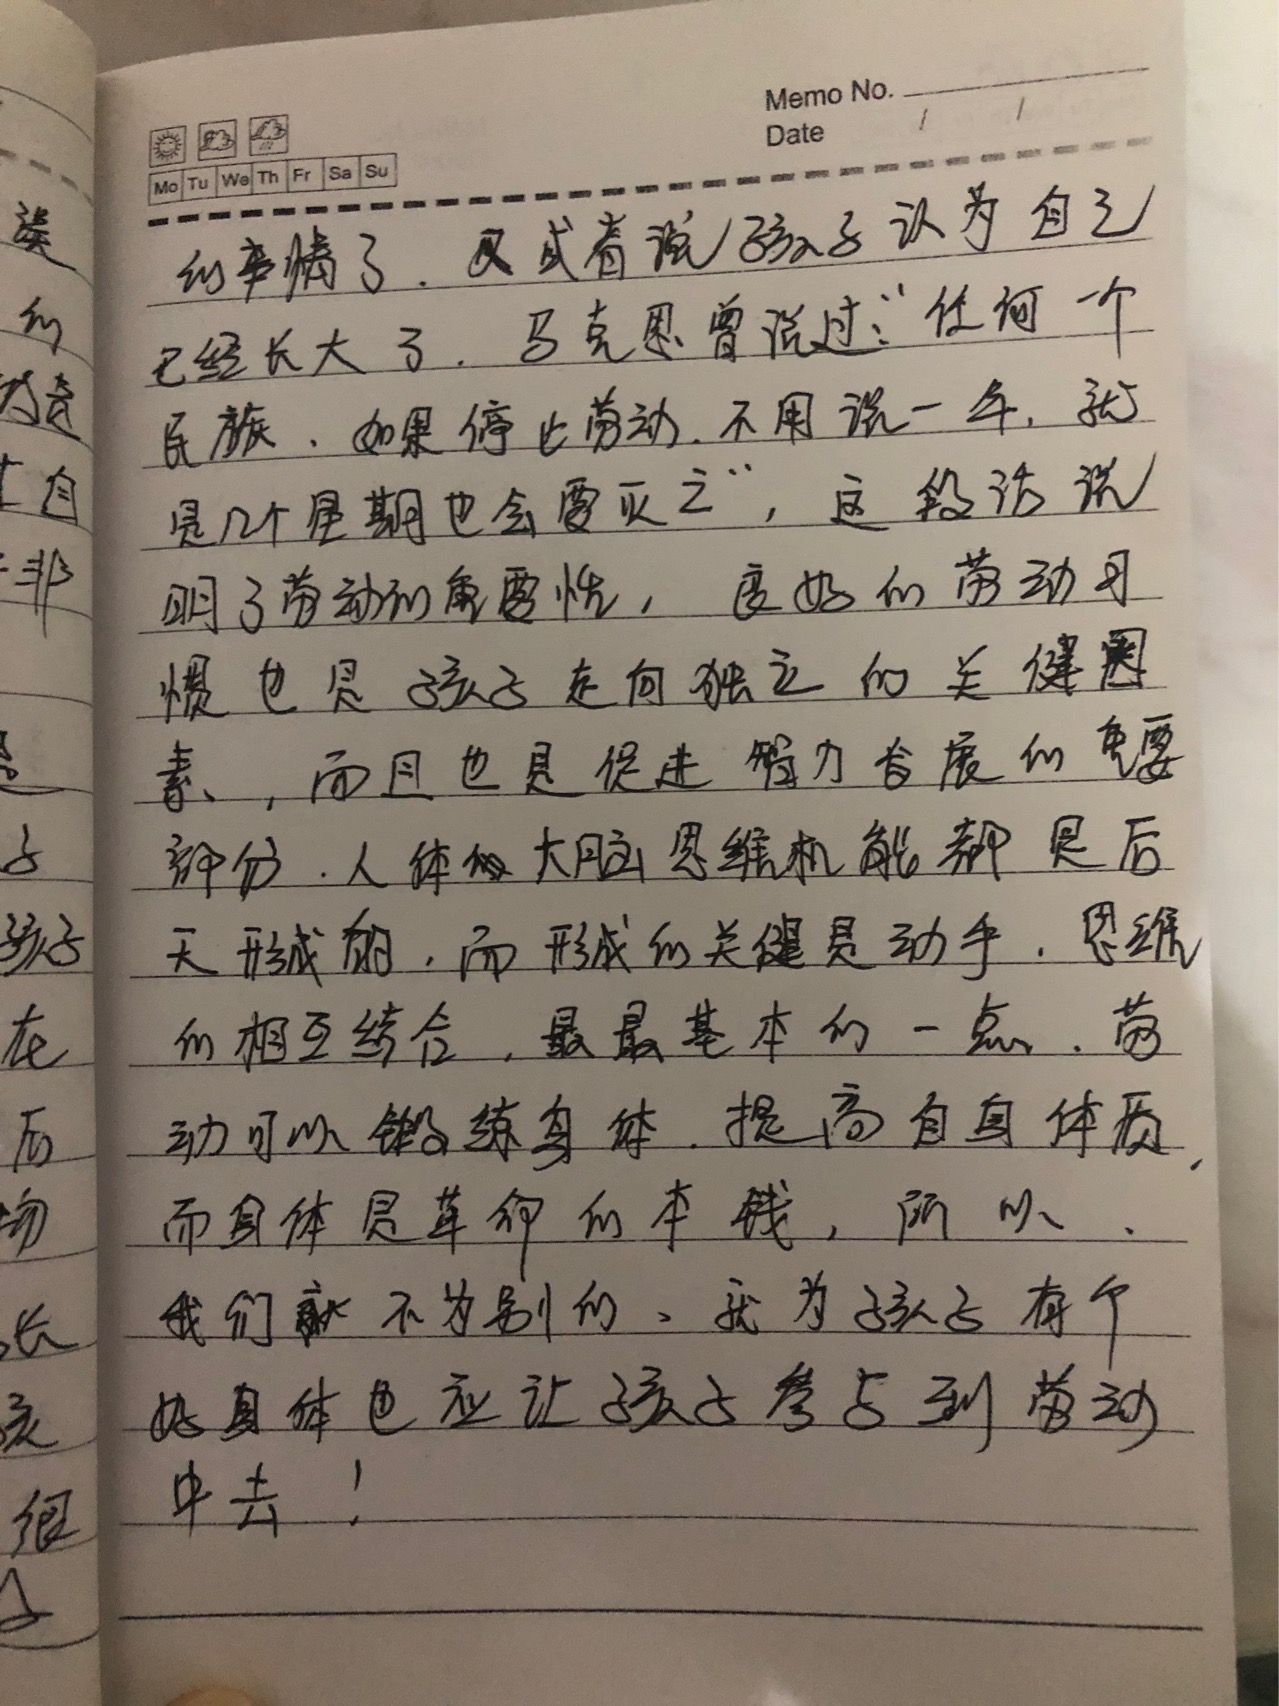 Memo No.
Date / /
Mo Tu We Th Fr Sa Su
的事情了.又或者说孩子认为自己
已经长大了.马克思曾说过:“任何一个
民族、如果停止劳动.不用说一年,就
是几个星期也会要灭亡”,这段话说
明了劳动的重要性,良好的劳动习
惯也是孩子走向独立的关健因
素,而且也是促进智力发展的重要
部分.人体的大脑思维机能都是后
天形成的,而形成的关健是动手.思维
的相互结合,最最基本的一点、劳
动可以锻练身体.提高自身体质,
而身体是革命的本钱,所以、
我们就不为别的、就为孩子有个
好身体也应让孩子参与到劳动
中去!
类
的
自
非
子
孩子
在
后
物
长
孩
很